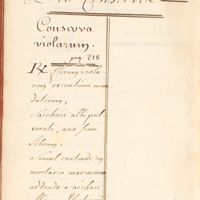 Conserva
violarum.
pag. 218
℞. florum viola
rum recentium mun
datorum,
Sacchari albi pul
verati, ana
Libram.
simul contunde in
mortario marmoreo
addendo Sacchari